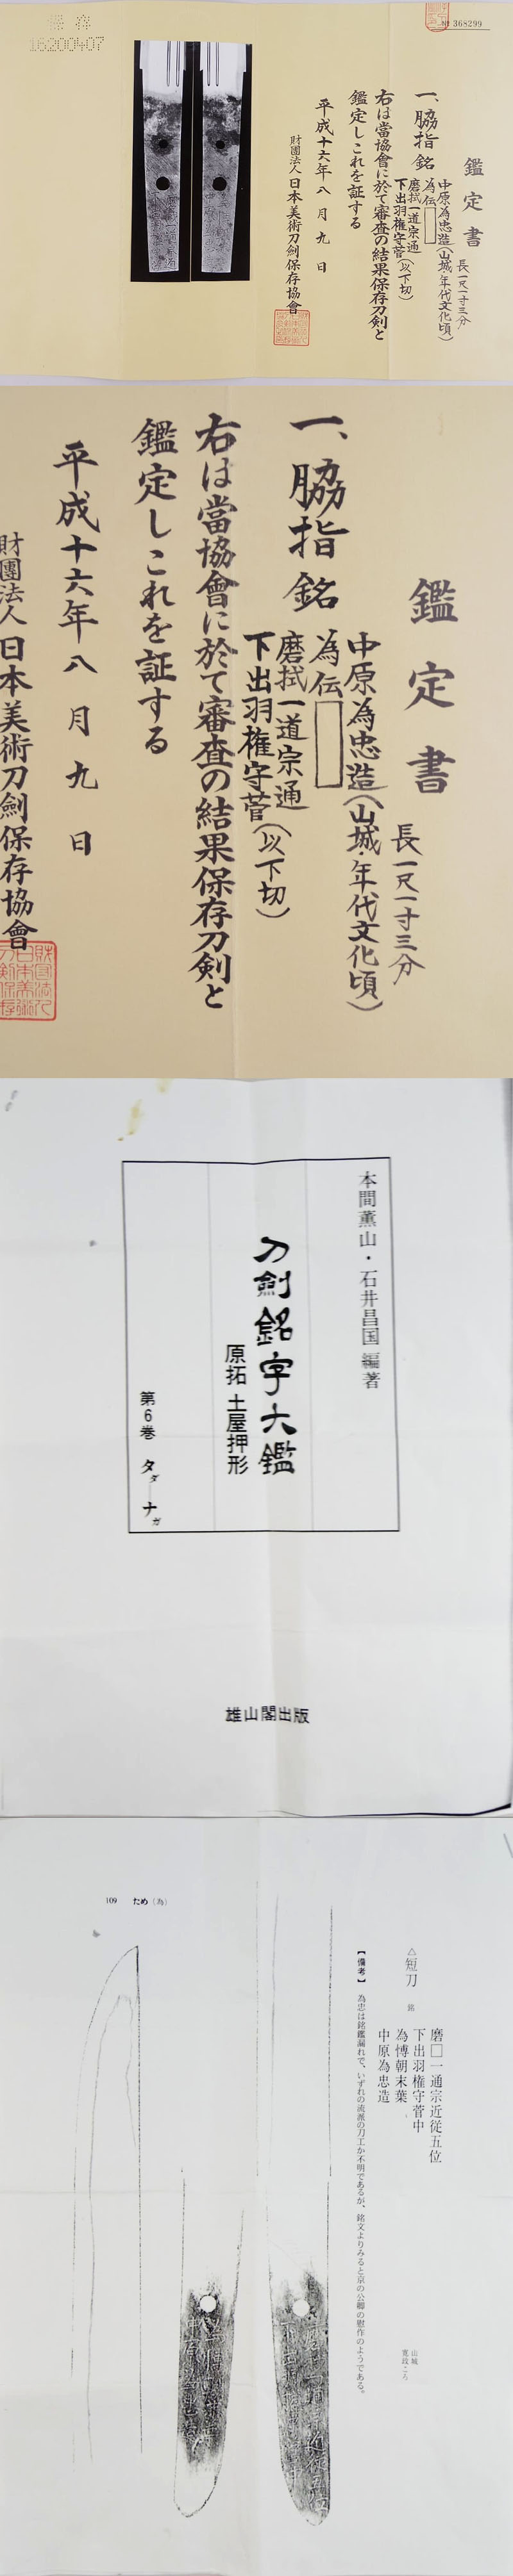 保存
16200407
№ 368299
鑑定書
長一尺一寸三分
一、脇指 銘
中原為忠造(山城・年代文化頃)
為伝
磨拭一道宗通
下出羽権守菅(以下切)
右は當協會に於て審査の結果保存刀剣と
鑑定しこれを証する
平成十六年八月九日
財團法人日本美術刀劍保存協會
鑑定書
長一尺一寸三分
一、脇指 銘
中原為忠造(山城・年代文化頃)
為伝
磨拭一道宗通
下出羽権守菅(以下切)
右は當協會に於て審査の結果保存刀剣と
鑑定しこれを証する
平成十六年八月九日
財團法人日本美術刀劍保存協會
本間薫山・石井昌国 編著
刀劍銘字大鑑
原拓 土屋押形
第6巻 タダ―ナガ
雄山閣出版
109 ため(為)
△短刀 銘
磨□一通宗近従五位
下出羽権守菅中
為博朝末葉
中原為忠造
山城
寛政ころ
【備考】 為忠は銘鑑漏れで、いずれの流派の刀工か不明であるが、銘文よりみると京の公卿の慰作のようである。